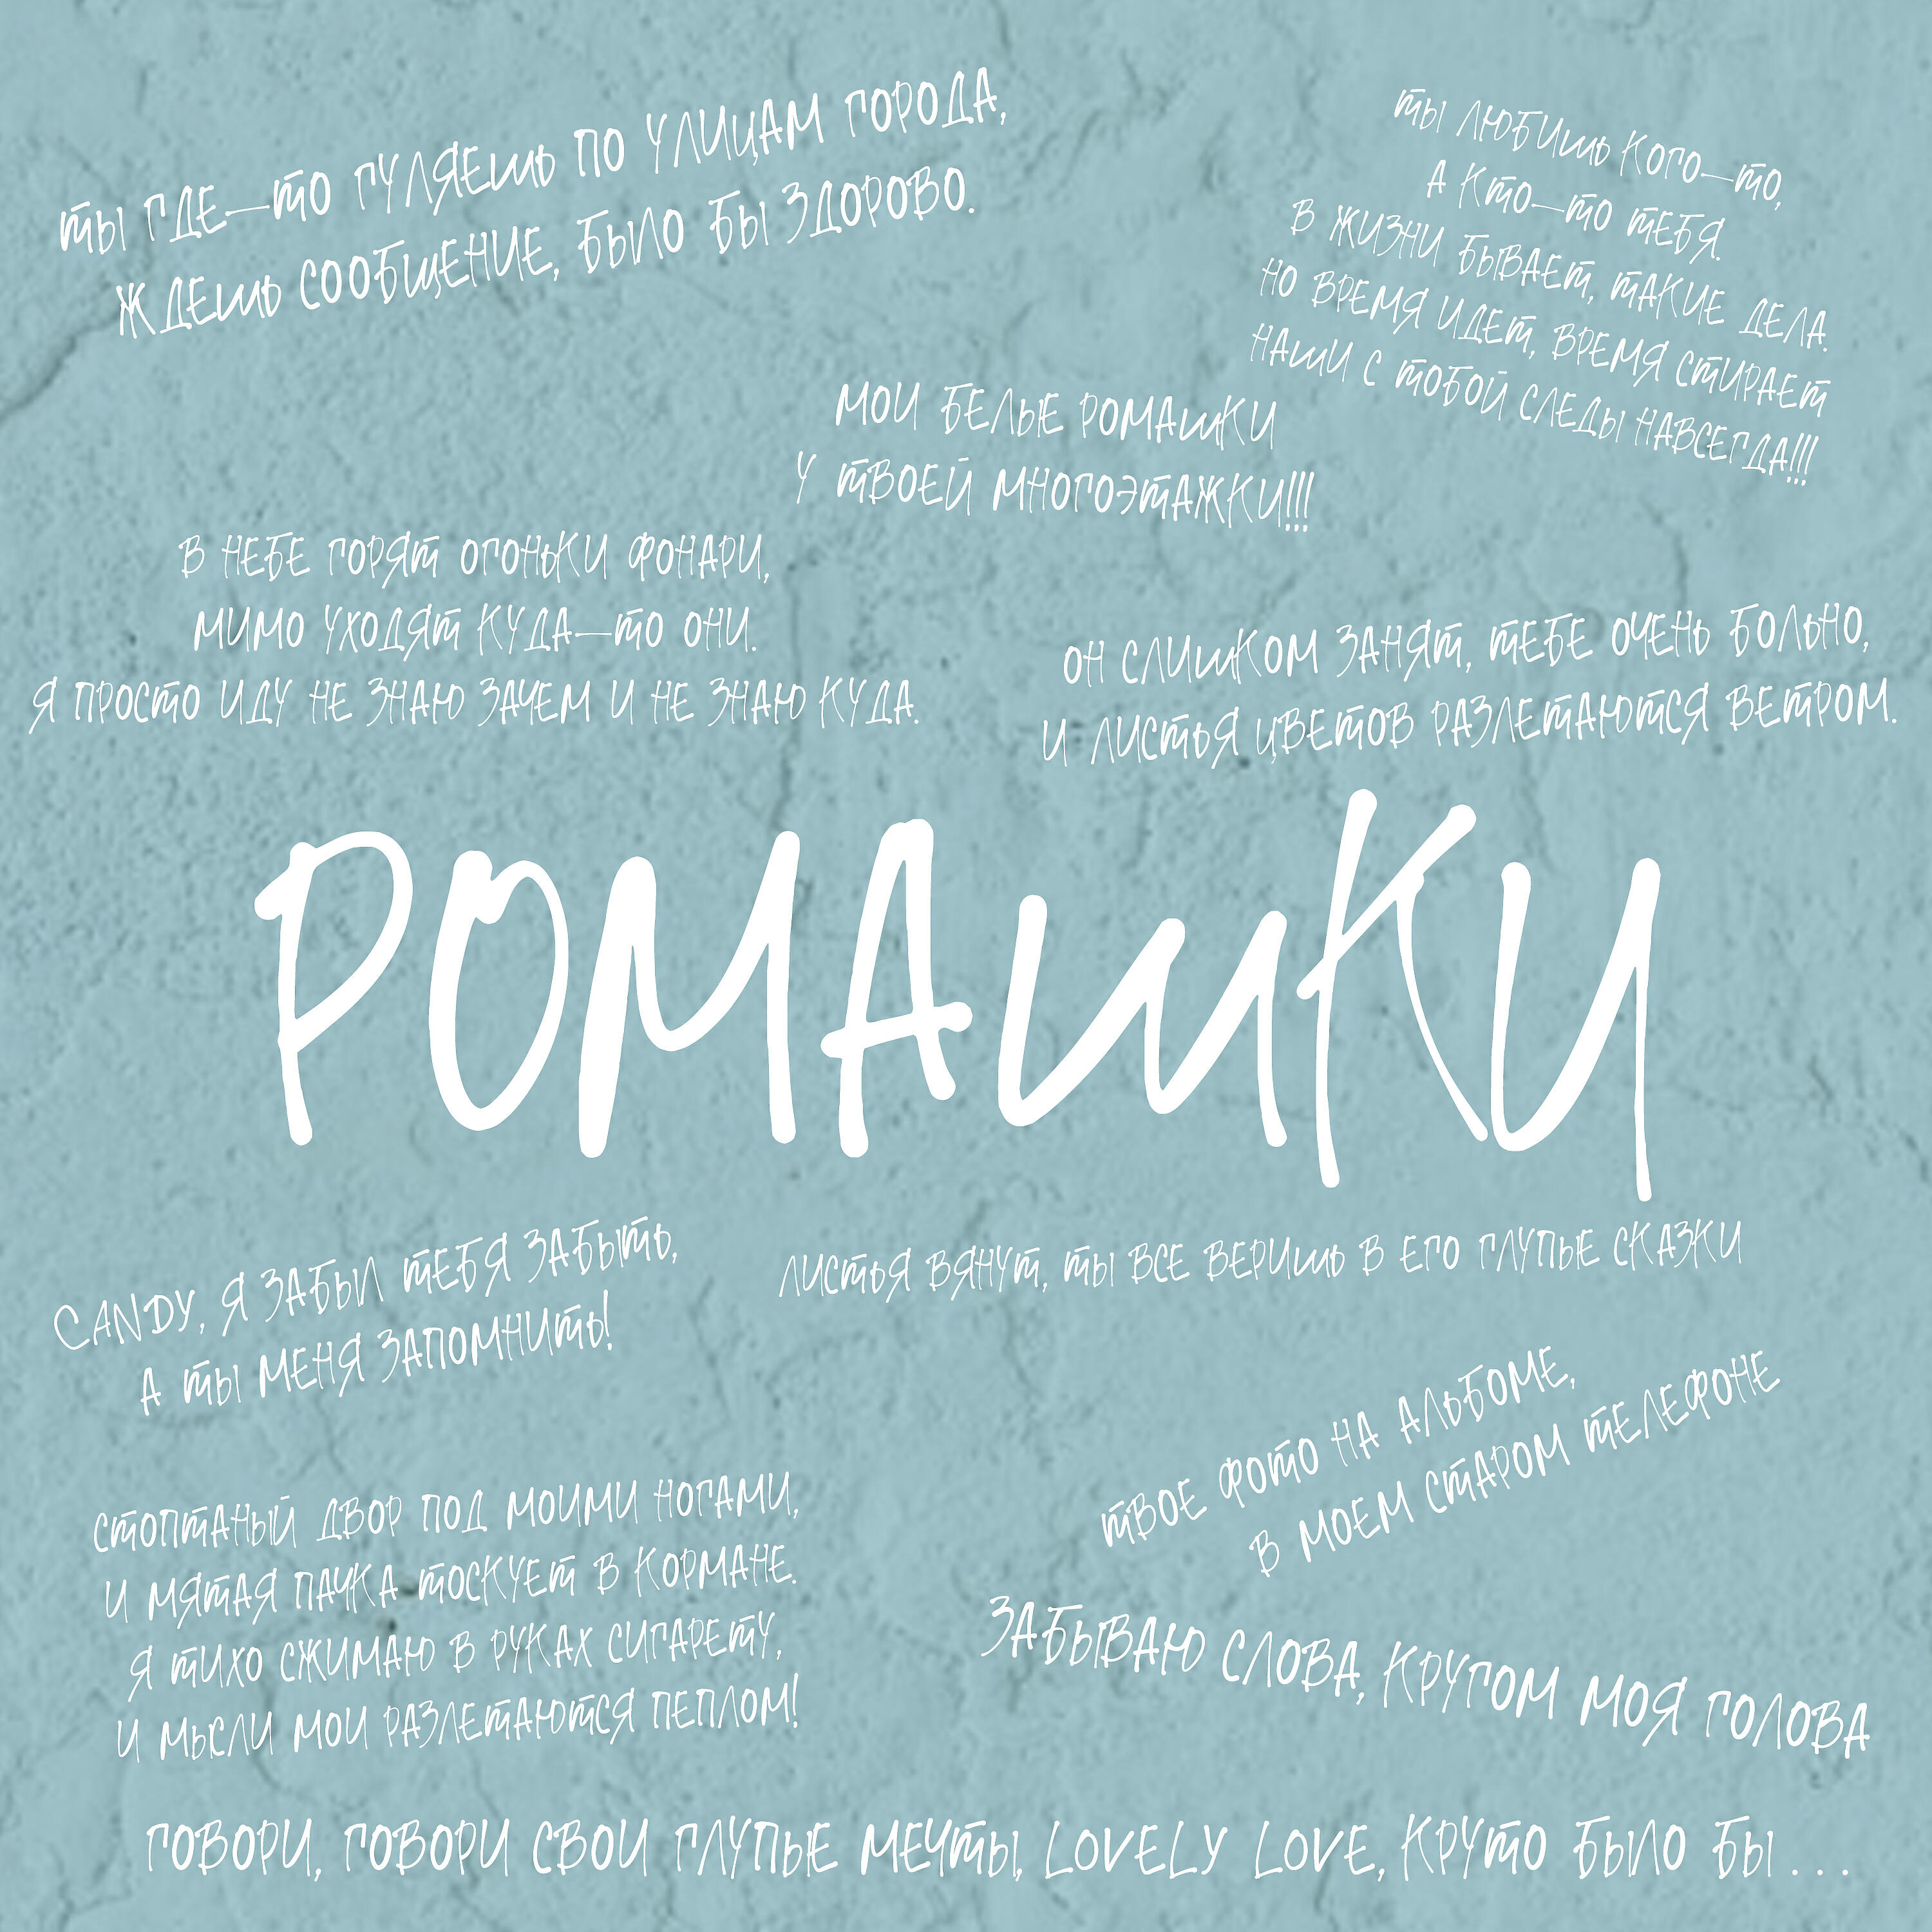 ТЫ ГДЕ—ТО ГУЛЯЕШЬ ПО УЛИЦАМ ГОРОДА,
ЖДЕШЬ СООБЩЕНИЕ, БЫЛО БЫ ЗДОРОВО.
ТЫ ЛЮБИШЬ КОГО—ТО,
А КТО—ТО ТЕБЯ.
В ЖИЗНИ БЫВАЕТ, ТАКИЕ ДЕЛА.
НО ВРЕМЯ ИДЕТ, ВРЕМЯ СТИРАЕТ
НАШИ С ТОБОЙ СЛЕДЫ НАВСЕГДА!!!
МОИ БЕЛЫЕ РОМАШКИ
У ТВОЕЙ МНОГОЭТАЖКИ!!!
В НЕБЕ ГОРЯТ ОГОНЬКИ ФОНАРИ,
МИМО УХОДЯТ КУДА—ТО ОНИ.
Я ПРОСТО ИДУ НЕ ЗНАЮ ЗАЧЕМ И НЕ ЗНАЮ КУДА.
ОН СЛИШКОМ ЗАНЯТ, ТЕБЕ ОЧЕНЬ БОЛЬНО,
И ЛИСТЬЯ ЦВЕТОВ РАЗЛЕТАЮТСЯ ВЕТРОМ.
РОМАШКИ
CANDY, Я ЗАБЫЛ ТЕБЯ ЗАБЫТЬ,
А ТЫ МЕНЯ ЗАПОМНИТЬ!
ЛИСТЬЯ ВЯНУТ, ТЫ ВСЕ ВЕРИШЬ В ЕГО ГЛУПЫЕ СКАЗКИ
ТВОЕ ФОТО НА АЛЬБОМЕ,
В МОЕМ СТАРОМ ТЕЛЕФОНЕ
СТОПТАНЫЙ ДВОР ПОД МОИМИ НОГАМИ,
И МЯТАЯ ПАЧКА ТОСКУЕТ В КОРМАНЕ.
Я ТИХО СЖИМАЮ В РУКАХ СИГАРЕТУ,
И МЫСЛИ МОИ РАЗЛЕТАЮТСЯ ПЕПЛОМ!
ЗАБЫВАЮ СЛОВА, КРУГОМ МОЯ ГОЛОВА
ГОВОРИ, ГОВОРИ СВОИ ГЛУПЫЕ МЕЧТЫ, LOVELY LOVE, КРУТО БЫЛО БЫ . . .